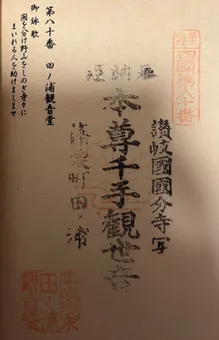 第八十番 田ノ浦観音堂
御詠歌
国を分け野山をしのぎ寺々に
まいれる人を助けましませ
四国第八十番
讃岐國國分寺写
奉納経
本尊千手観世音
田ノ浦